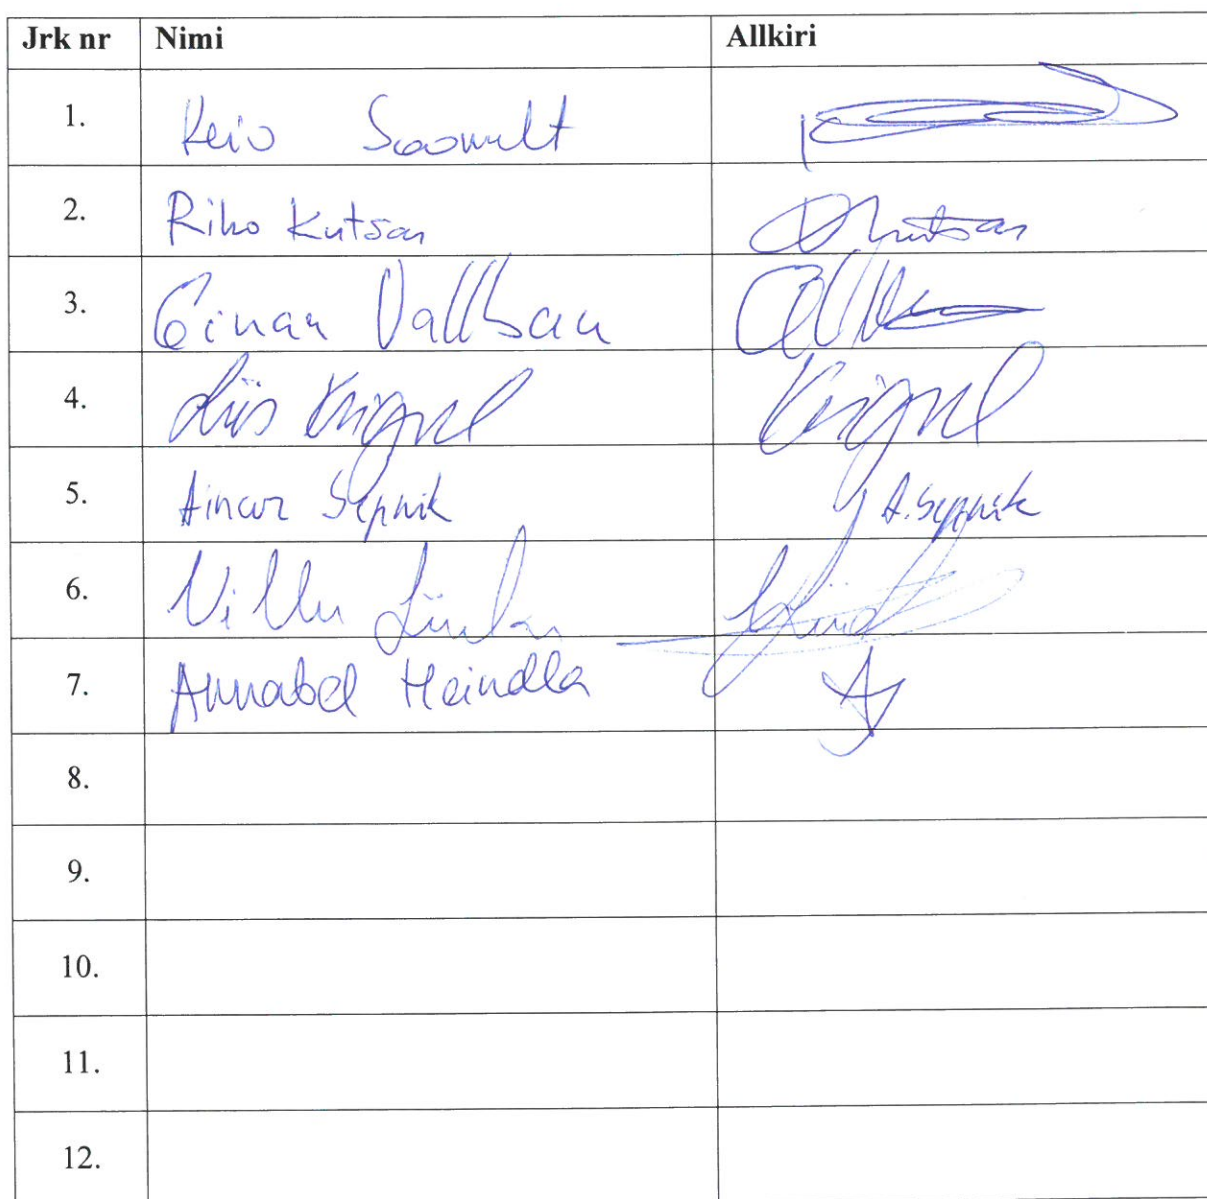 Jrk nr Nimi Allkiri
1. Keio Soomelt
2. Riho Kutsar Kutsar
3. Einar Vallbau
4. Liis Krigul Krigul
5. Ainar Sepnik A. Sepnik
6. Villu
7. Annabel Heindla
8.
9.
10.
11.
12.